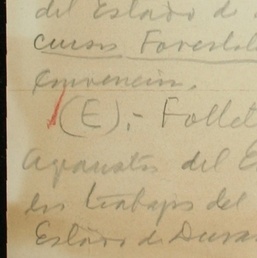 del Estado de
cursos Forestal
Convención.
(E).- Follet
del E
los trabajos del
Estado de Duran